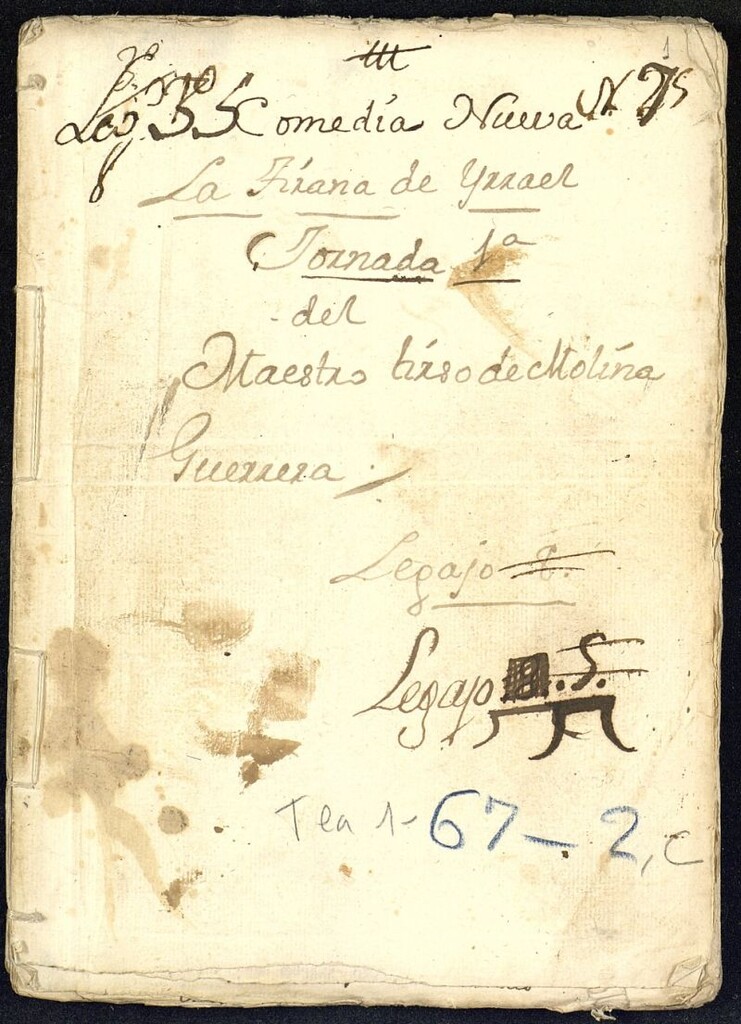 1
Leg. 55 Comedia Nueva N. 7
La Tirana de Yrrael
Jornada 1ª
del
Maestro tirso de Molina
Guerrera
Legajo
Legajo
Tea 1-67-2, c